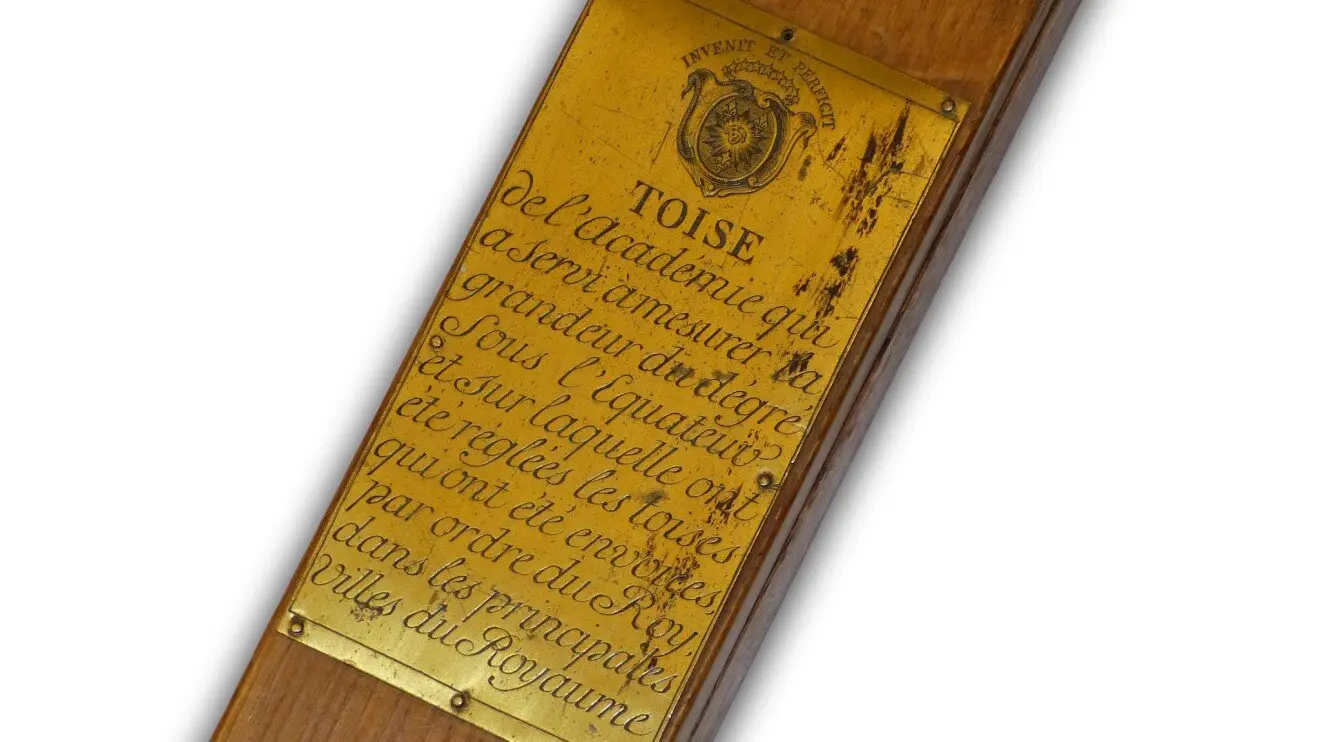 INVENIT ET PERFICIT
TOISE
de l'academie qui
a servi à mesurer la
grandeur du dégré
Sous l'Equateur
et sur laquelle ont
été réglées les toises
qui ont été envoyées,
par ordre du Roy,
dans les principales
Villes du Royaume